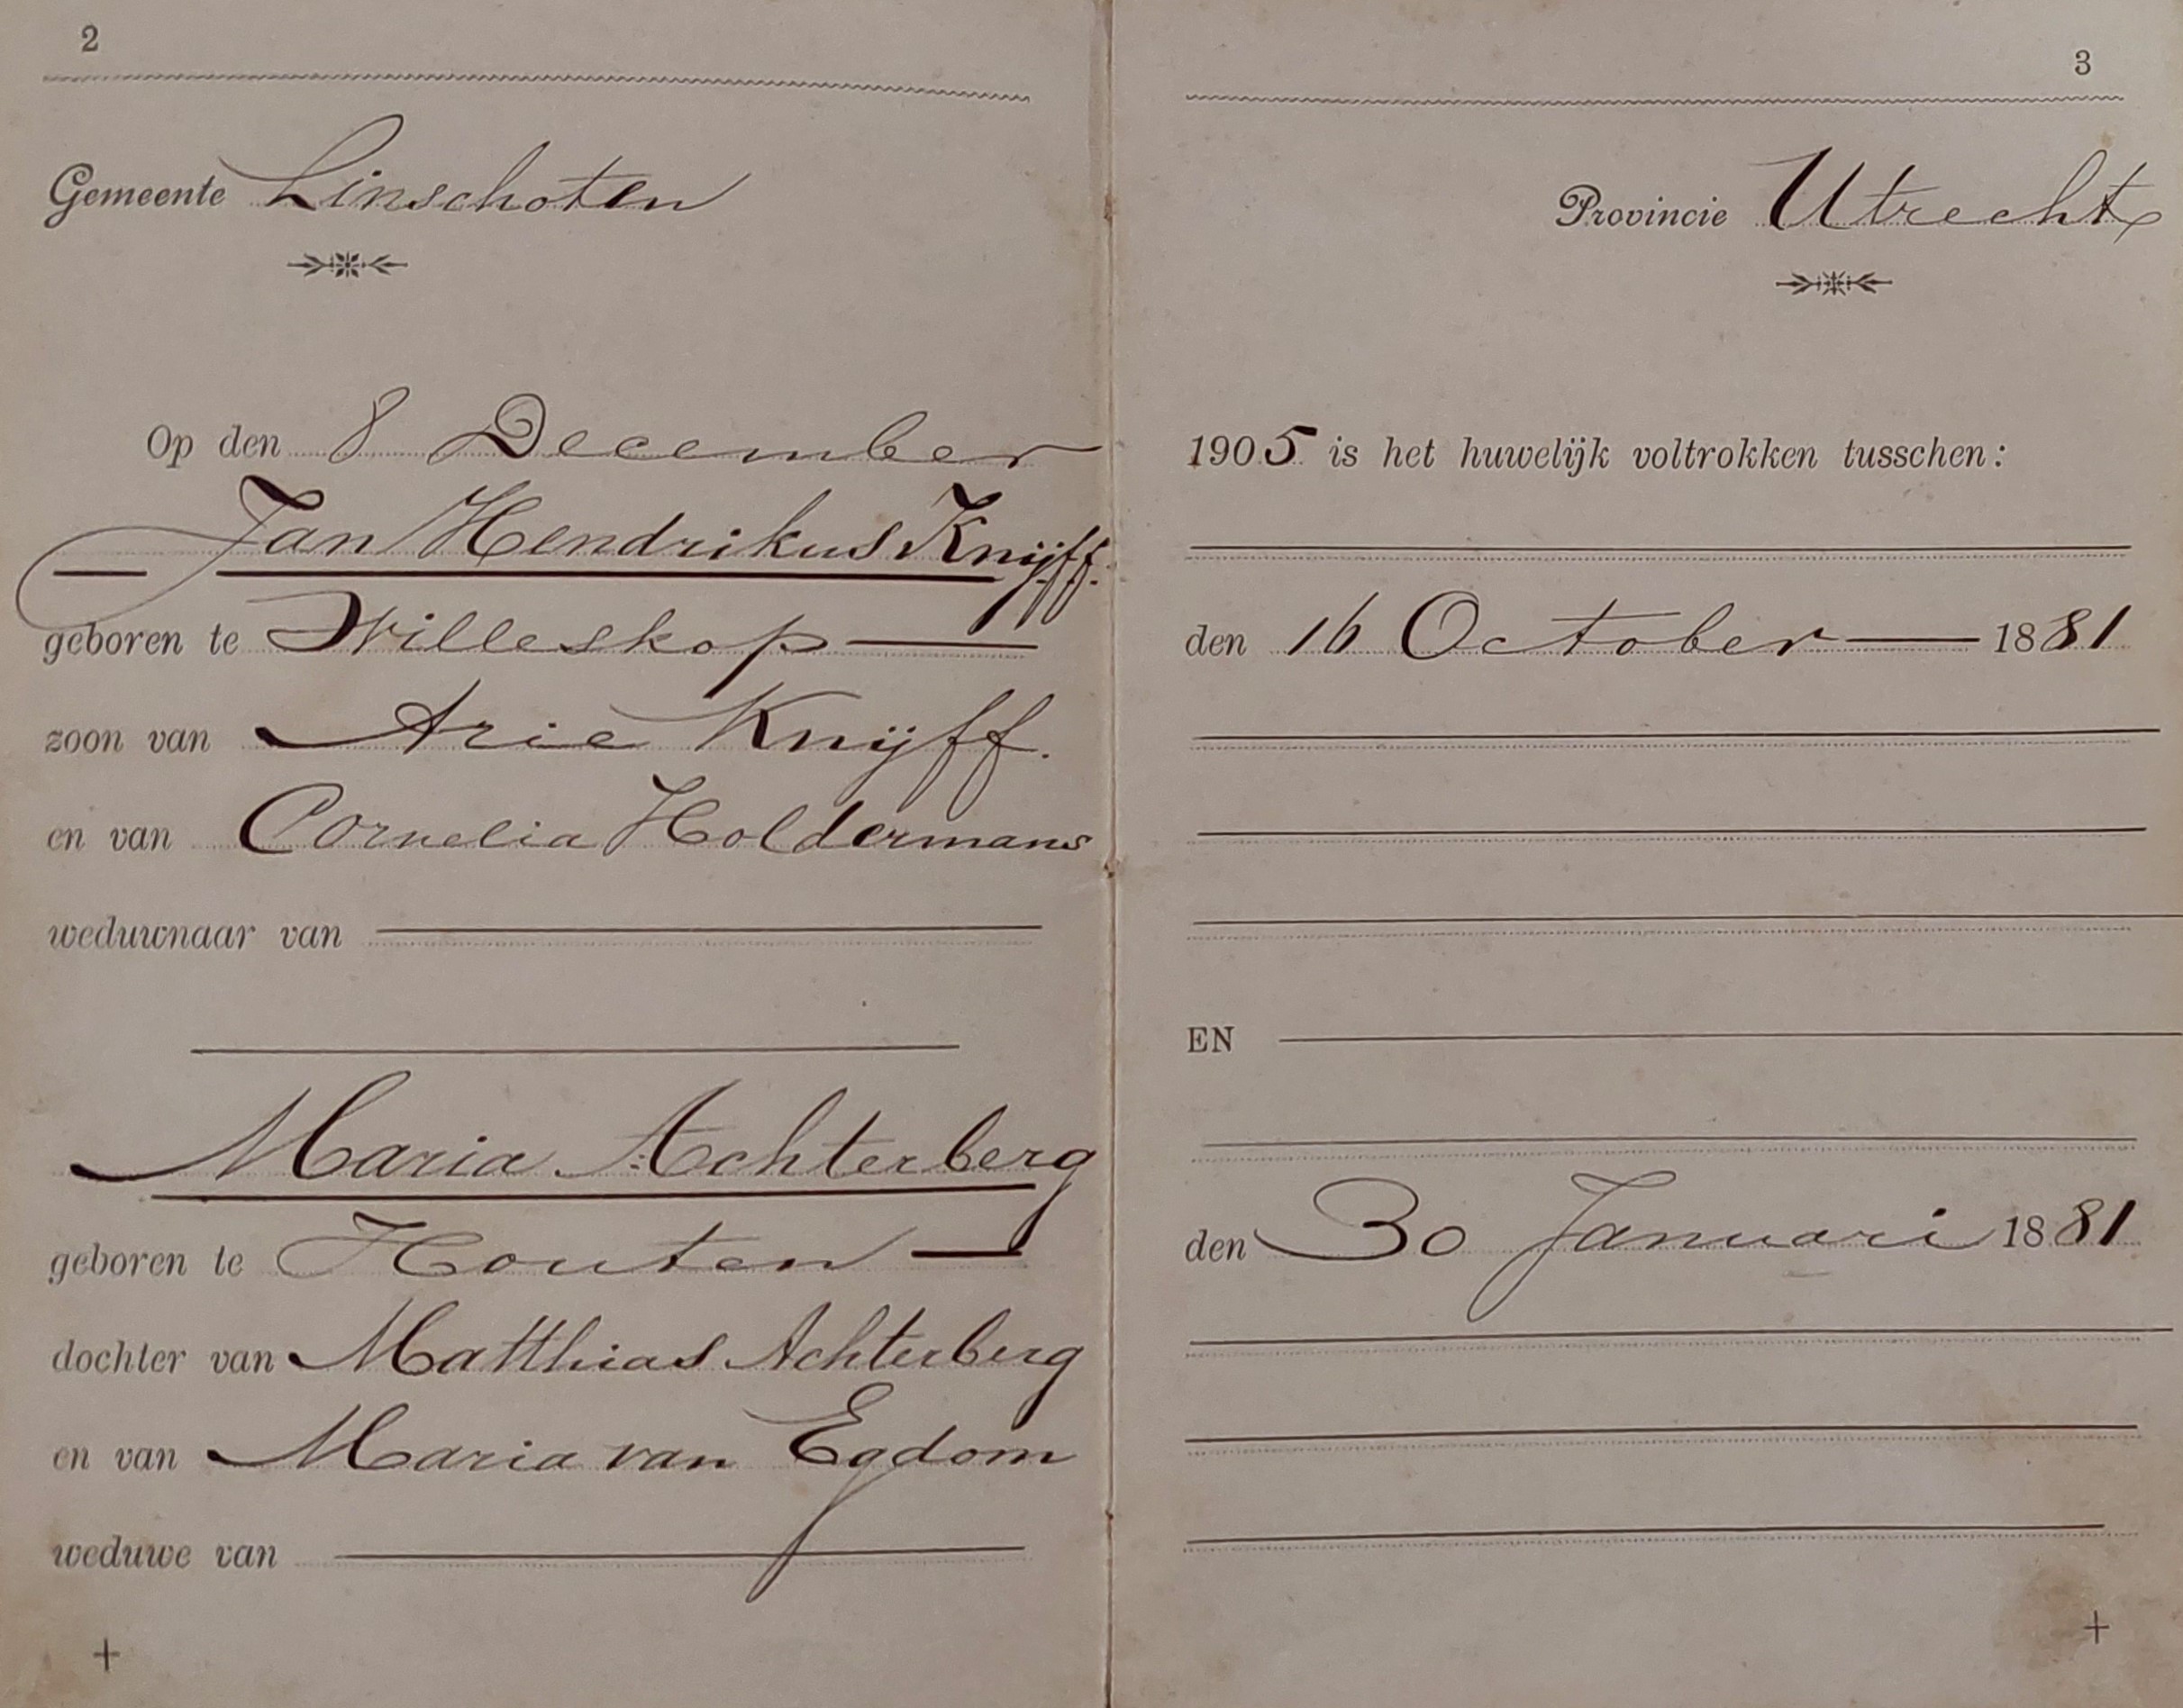 2
Gemeente Linschoten
Op den 8 December
Jan Hendrikus Knijff.
geboren te Willeskop
zoon van Arie Knijff.
en van Cornelia Holdermans
weduwnaar van
Maria Achterberg
geboren te Houten
dochter van Matthias Achterberg
en van Maria van Egdom
weduwe van
3
Provincie Utrecht
1905 is het huwelijk voltrokken tusschen:
den 16 October 1881
EN
den 30 Januari 1881